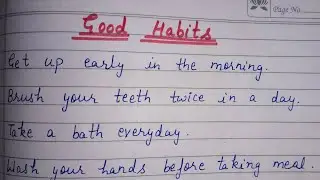 Page No.
Good Habits
Get up early in the morning.
Brush your teeth twice in a day.
Take a bath everyday.
Wash your hands before taking meal.